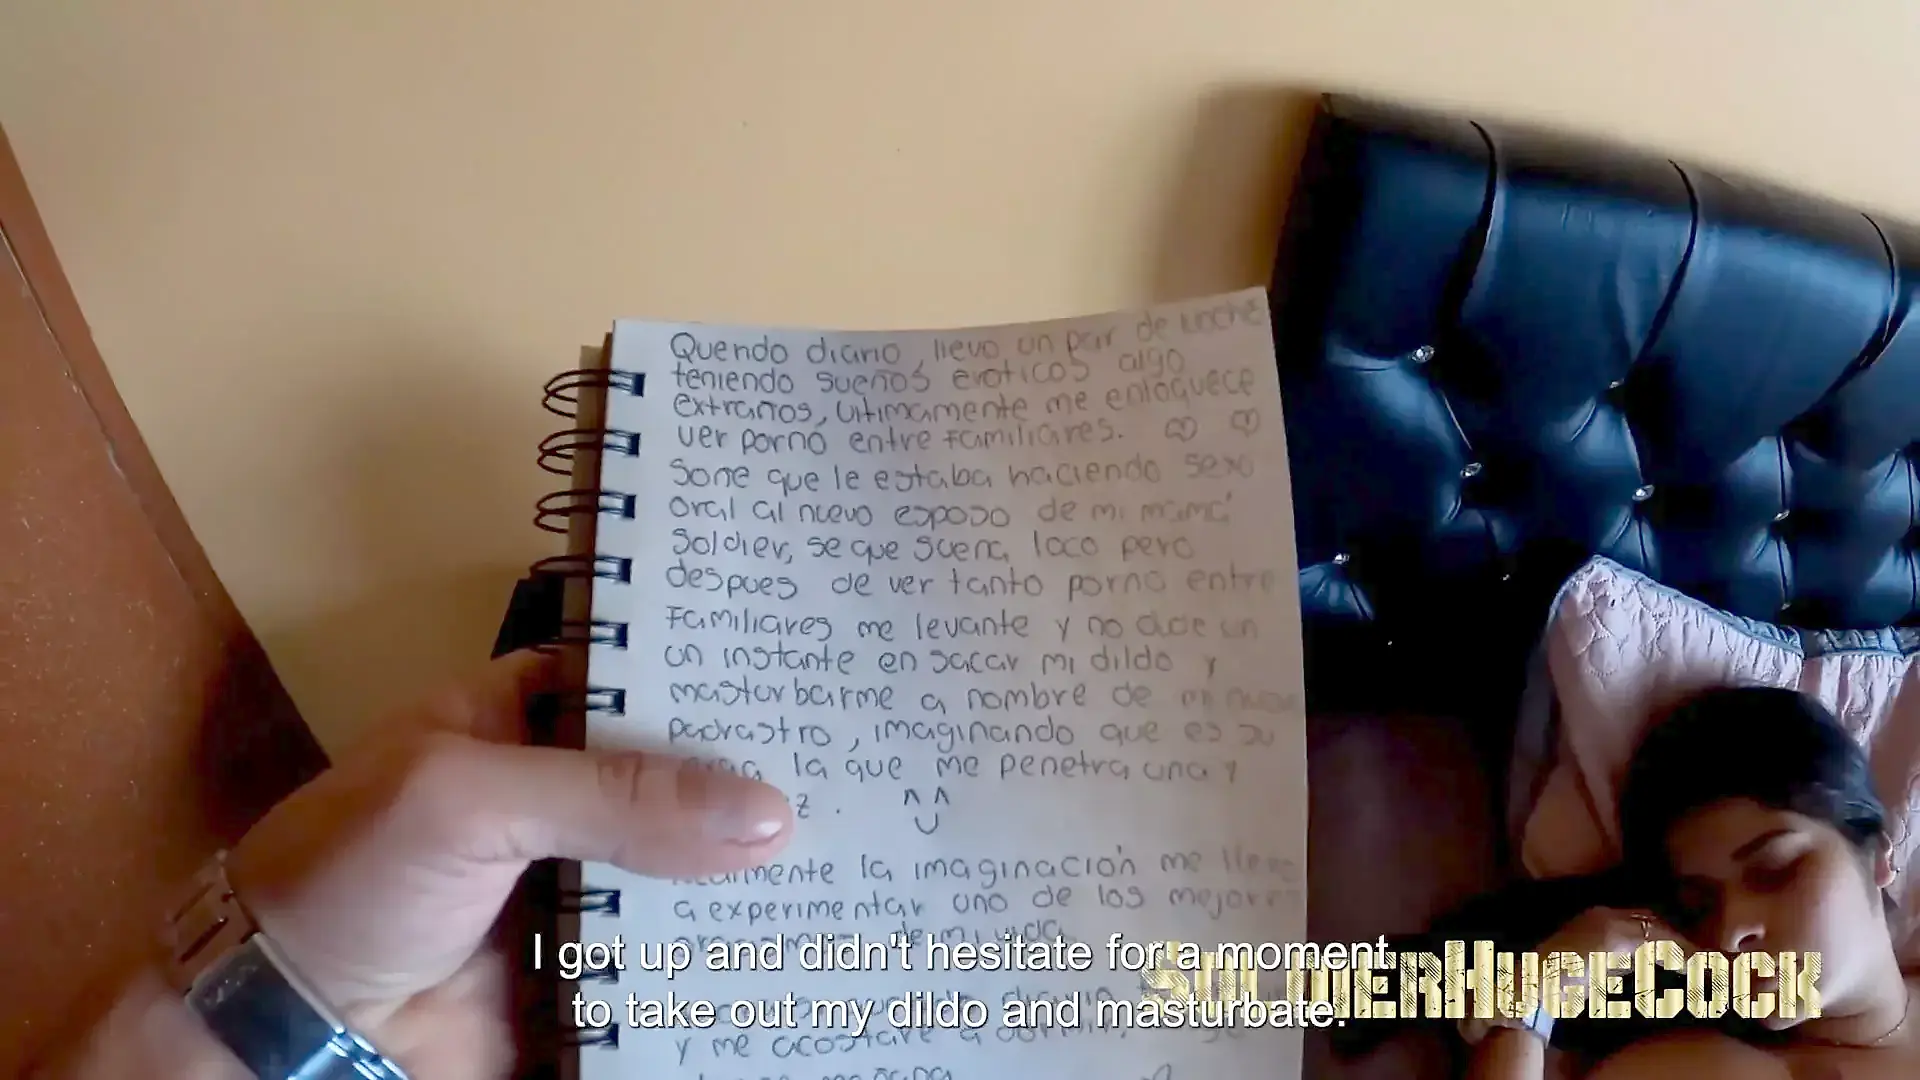 Quendo diario, llevo un par de noche
teniendo sueños eroticos algo
extraños, ultimamente me enloquece
ver porno entre Familiares.
Soñe que le estaba haciendo sexo
oral al nuevo esposo de mi mamá
Soldier, se que suena loco pero
despues de ver tanto porno entre
Familiares me levante y no dude un
un instante en sacar mi dildo y
masturbarme a nombre de mi
padrastro, imaginando que es su
la que me penetra una y
z.
la imaginación me
a experimentar uno de los mejores
de mi vida
I got up and didn't hesitate for a moment
to take out my dildo and masturbate.
SOLDIERHUGECOCK
y me acostare a